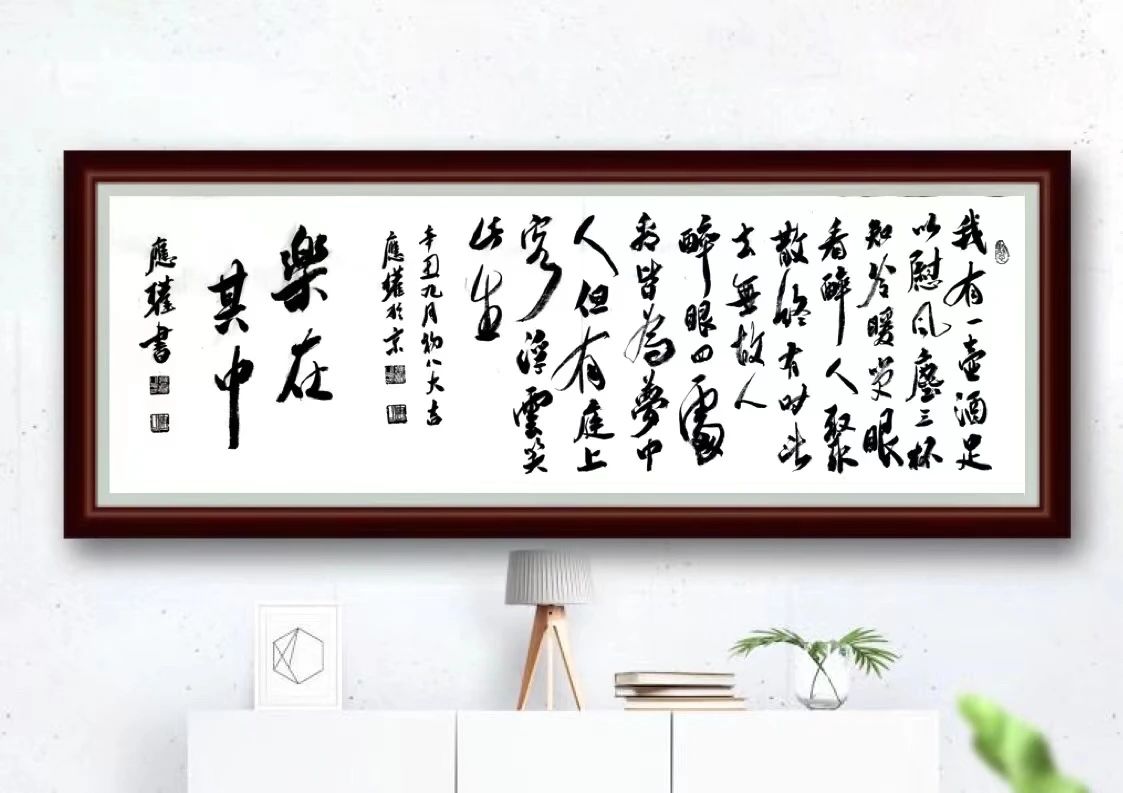 我有一壺酒足
以慰风塵三杯
知冷暖眼
看醉人聚
散终有时此
去無故人
醉眼四處
看皆為夢中
人但有庭上
客浮雲笑
此生
辛丑九月初八大吉
應於京
樂在
其中
應書